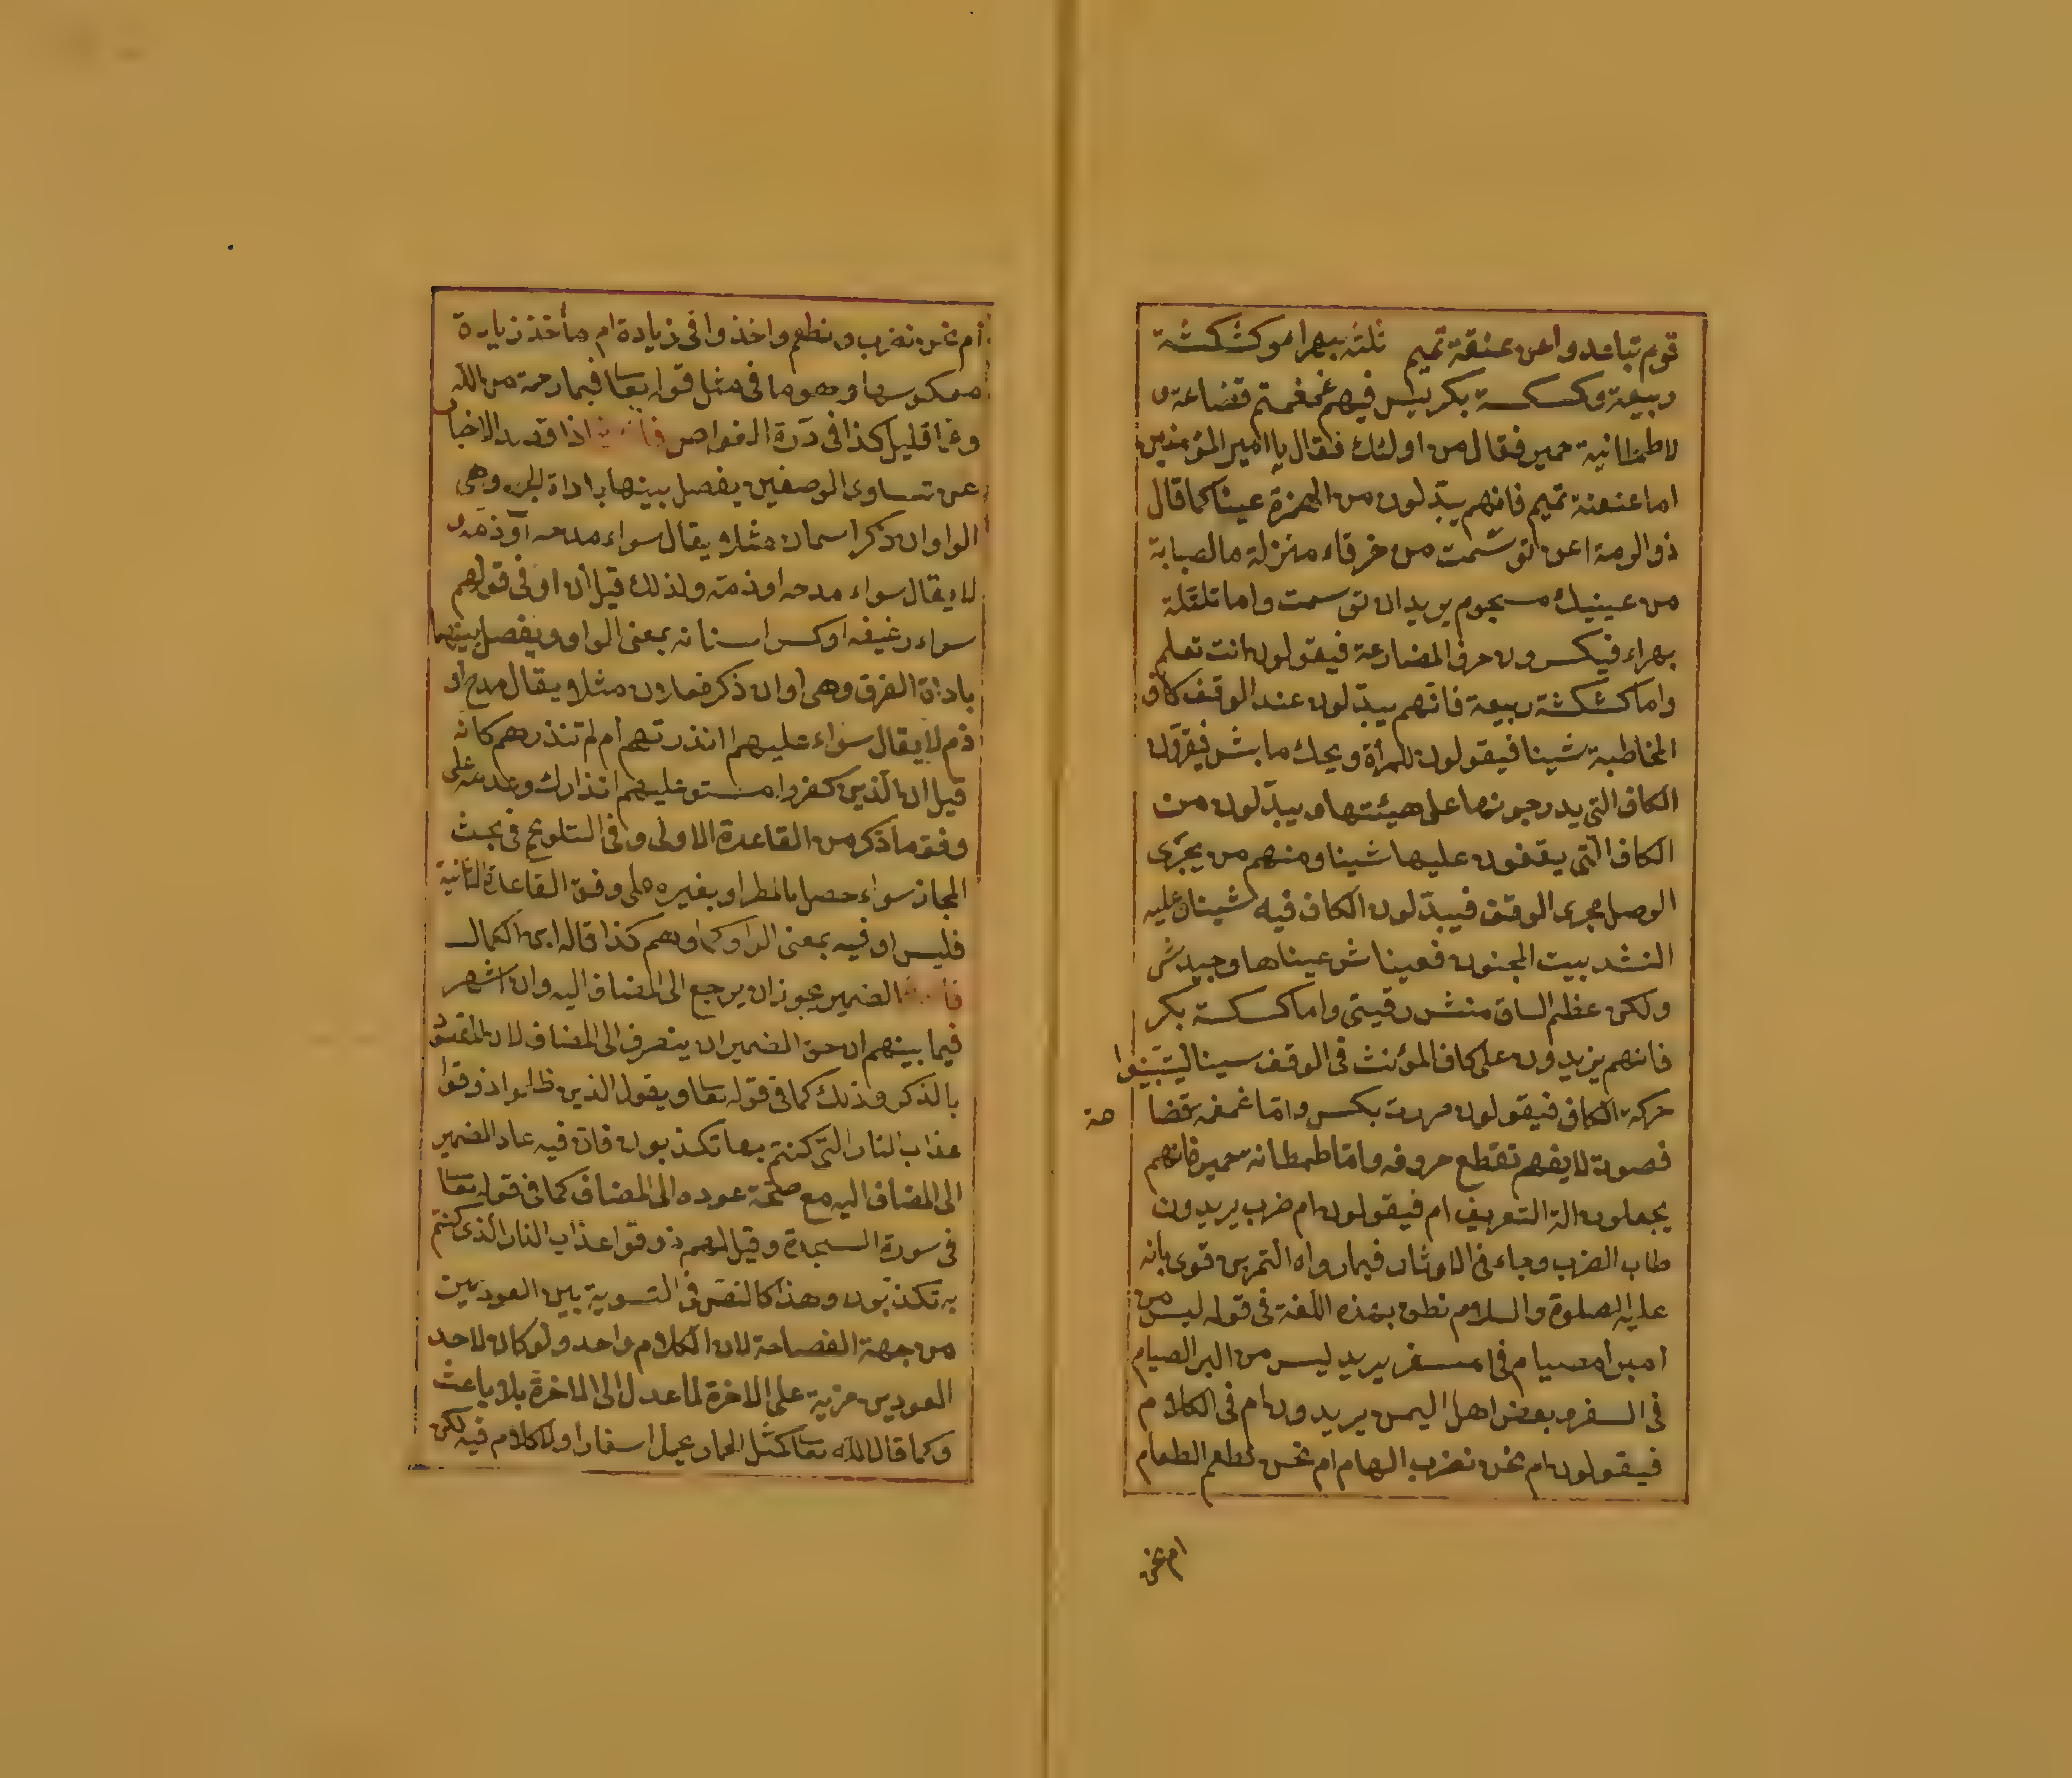 قوم تباعدوا عن عنعنة تميم ثلثه بهراء وكشكشة
ربيعة وكسكسة بكر ليس فيهم غمغمتم قضاعة و
لا طمطانية حمير فقال من اولئك فقال يا امير المؤمنين
اما عنعنة تميم فانهم يبدّلون من الهمزة عينا كما قال
ذو الرمة اعن توسّمت من خرقاء منزلة ما الصبابة
من عينيك مسجوم يريد ان توسمت واما تلتلة
بهراء فيكسرون حرف المضارعة فيقولون انت تعلم
واما كشكشة ربيعة فانهم يبدّلون عند الوقف كاف
المخاطبة شينا فيقولون للمرأة ويحك ما بش فيقرّون
الكاف التى يدرجونها على هيئتها ويبدّلون من
الكاف التى يقفون عليها شينا ومنهم من يجرى
الوصل مجرى الوقف فيبدّلون الكاف فيه شينا وعليه
انشد بيت المجنون فعيناش عيناها وجيدش
ولكن عظم الساق منش رقيق واما كسكسة بكر
فانهم يزيدون على كاف المؤنث فى الوقف سينا ليتبيّنوا
حركة الكاف فيقولون مررت بكس واما غمغمة قضا
عة
فصوت لا يفهم تقطع حروفه واما طمطانه حمير فانهم
يجعلون الة التعريف ام فيقولون ام ضرب يريدون
طاب الضرب وجاء فى الاوثار فيما رواه النمر بن قوى بانه
عليه الصلوة والسلام نطق بهذه اللغة فى قوله ليس من
امبر امصيام فى امسفر يريد ليس من البر الصيام
فى السفر وبعض اهل اليمن يريدون ام فى الكلام
فيقولون ام نحن نضرب الهام ام نحن نطعم الطعام
ام نحن
ام نحن نضرب ونطعم واخذوا فى زيادة ام مأخذ زيادة
معكوسها وهو ما فى مثل قوله تعا فبما رحمة من الله
وفما قليل كذا فى درة الغواص اذا قصد الاخبار
عن تساوى الوصفين يفصل بينهما باداة الجمع وهى
الواو ان ذكر اسمان مثلا ويقال سواء مدحه او ذمه و
لا يقال سواء مدحه او ذمّه ولذلك قيل ان او فى قولهم
سواء رغيفه او كسر اسنانه بمعنى الواو ويفصل بينهما
باداة الفرق وهى او ان ذكر فعلان مثلا ويقال مدح او
ذم لا يقال سواء عليهم اانذرتهم ام لم تنذرهم كانه
قيل ان الذين كفروا مستو عليهم انذارك وعدمه على
وفق ما ذكر من القاعدة الاولى وفى التلويح فى بحث
المجاز سواء حصل بالمطر او بغيره على وفق القاعدة الثانية
فليس او فيه بمعنى الواو كما وهم كذا قاله ابن الكمال
الضمير يجوز ان يرجع الى المضاف اليه وان اشهر
فيما بينهم ان حق الضمير ان ينصرف الى المضاف لان المقصود
بالذكر وذلك كما فى قوله تعا ويقول الذين ظلموا ذوقوا
عذاب النار التى كنتم بها تكذبون فان فيه عاد الضمير
الى المضاف اليه مع صحة عوده الى المضاف كما فى قوله تعا
فى سورة السجدة وقيل لهم ذوقوا عذاب النار الذى كنتم
به تكذبون وهذا كالنص فى التسوية بين العودين
من جهة الفصاحة لان الكلام واحد ولو كان لاحد
العودين مزية على الاخرة لما عدل الى الاخرة بلا باعث
وكما قال الله تعا كمثل الحمار يحمل اسفارا ولا كلام فيه لكن